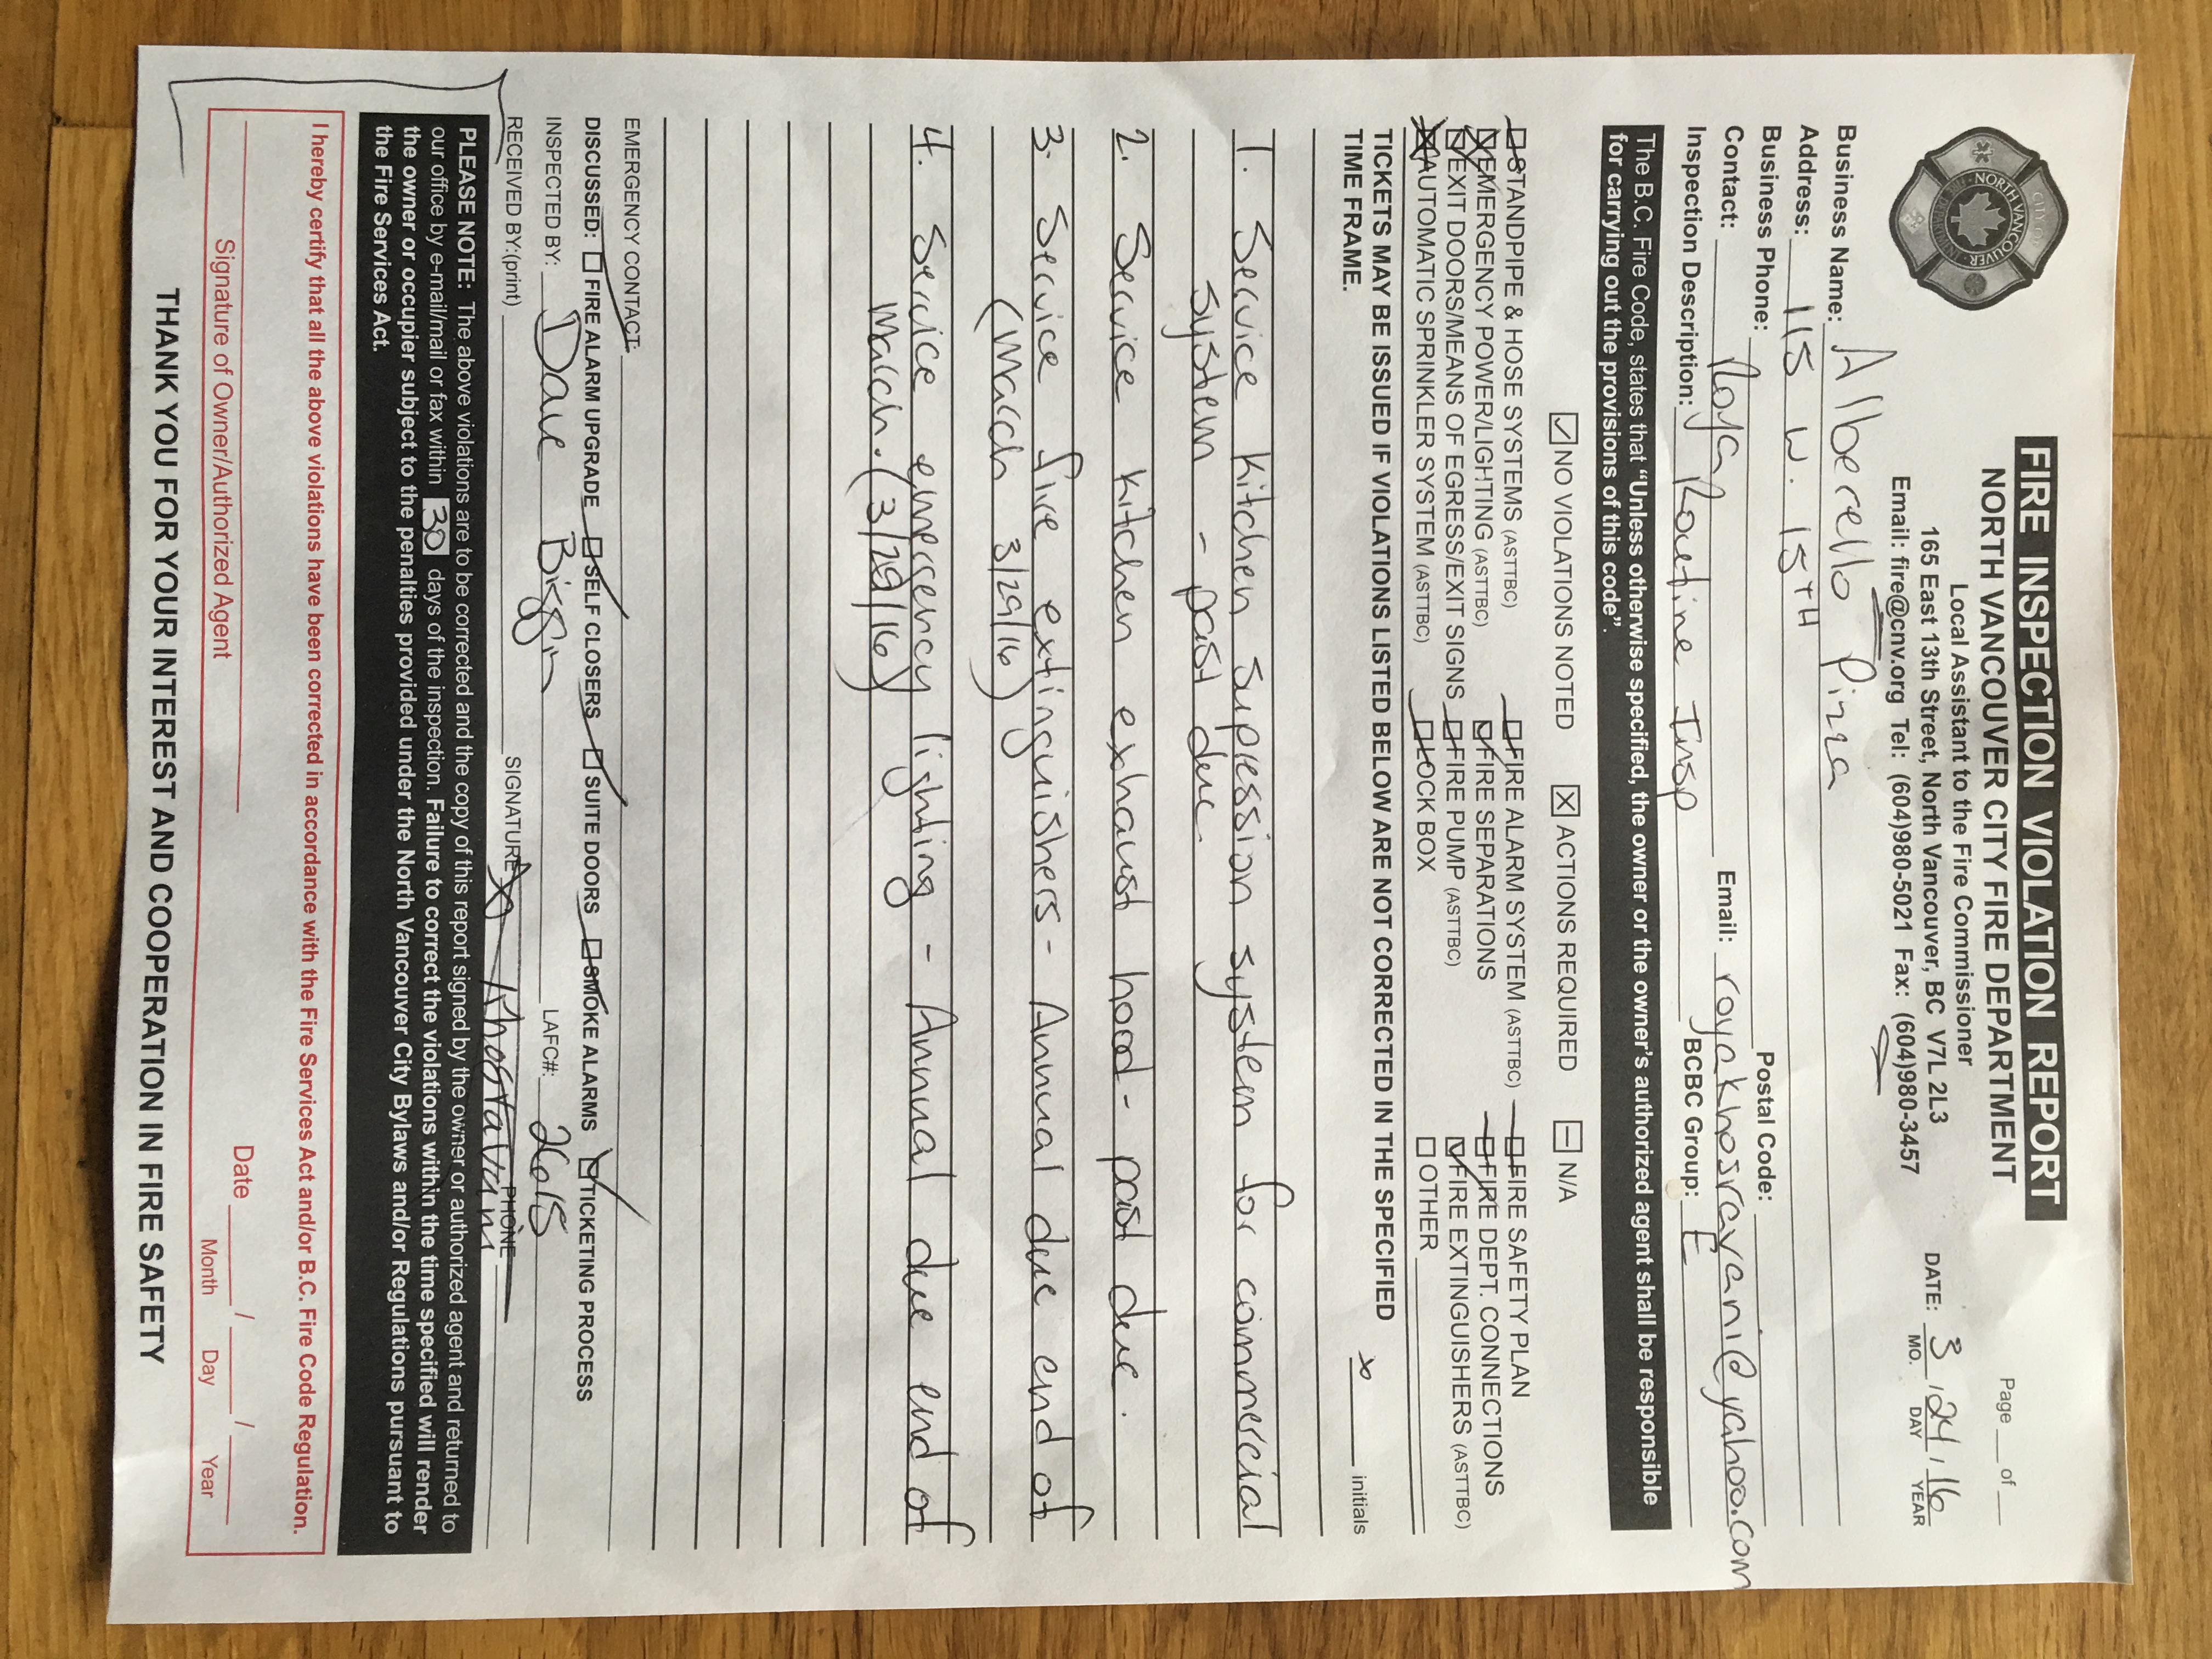 FIRE INSPECTION VIOLATION REPORT
NORTH VANCOUVER CITY FIRE DEPARTMENT
Local Assistant to the Fire Commissioner
165 East 13th Street, North Vancouver, BC V7L 2L3
Email: fire@cnv.org Tel: (604)980-5021 Fax: (604)980-3457
CITY OF
NORTH VANCOUVER
Page ___ of ___
DATE: 3 / 24 / 16
MO. DAY YEAR
Business Name: Albercello Pizza
Address: 115 W. 15TH
Business Phone: Postal Code:
Contact: Roya Email: royakhosravani@yahoo.com
Inspection Description: Routine Insp BCBC Group: E
The B.C. Fire Code, states that "Unless otherwise specified, the owner or the owner's authorized agent shall be responsible
for carrying out the provisions of this code".
NO VIOLATIONS NOTED ACTIONS REQUIRED N/A
STANDPIPE & HOSE SYSTEMS (ASTTBC) FIRE ALARM SYSTEM (ASTTBC) FIRE SAFETY PLAN
EMERGENCY POWER/LIGHTING (ASTTBC) FIRE SEPARATIONS FIRE DEPT. CONNECTIONS
EXIT DOORS/MEANS OF EGRESS/EXIT SIGNS FIRE PUMP (ASTTBC) FIRE EXTINGUISHERS (ASTTBC)
AUTOMATIC SPRINKLER SYSTEM (ASTTBC) LOCK BOX OTHER
TICKETS MAY BE ISSUED IF VIOLATIONS LISTED BELOW ARE NOT CORRECTED IN THE SPECIFIED
TIME FRAME. x initials
1. Service Kitchen supression system for commercial
system - past due.
2. Service kitchen exhaust hood - past due.
3. Service fire extinguishers - Annual due end of
(March 3/29/16)
4. Service emergency lighting - Annual due end of
March. (3/29/16)
EMERGENCY CONTACT:
DISCUSSED: FIRE ALARM UPGRADE SELF CLOSERS SUITE DOORS SMOKE ALARMS TICKETING PROCESS
INSPECTED BY: Dave Biggin LAFC#: 2615
RECEIVED BY:(print) SIGNATURE PHONE
PLEASE NOTE: The above violations are to be corrected and the copy of this report signed by the owner or authorized agent and returned to
our office by e-mail/mail or fax within 30 days of the inspection. Failure to correct the violations within the time specified will render
the owner or occupier subject to the penalties provided under the North Vancouver City Bylaws and/or Regulations pursuant to
the Fire Services Act.
I hereby certify that all the above violations have been corrected in accordance with the Fire Services Act and/or B.C. Fire Code Regulation.
Date / /
Signature of Owner/Authorized Agent Month Day Year
THANK YOU FOR YOUR INTEREST AND COOPERATION IN FIRE SAFETY